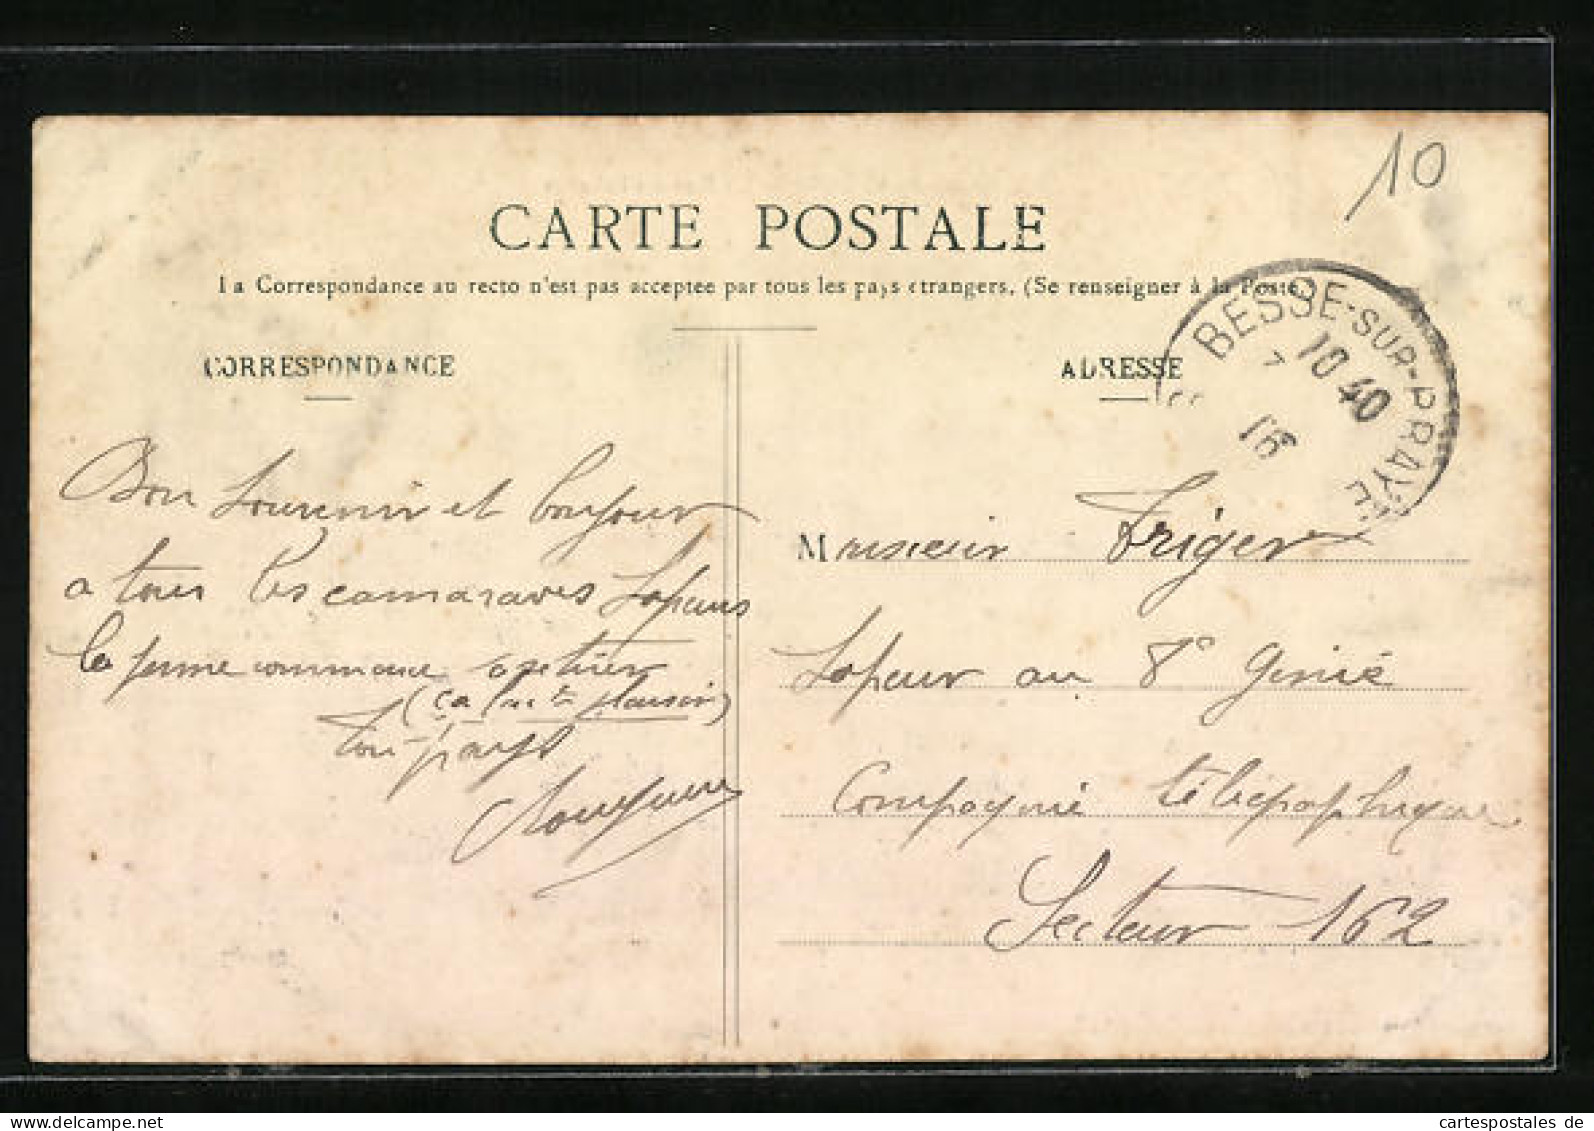 10
CARTE POSTALE
La Correspondance au recto n'est pas acceptee par tous les pays etrangers. (Se renseigner à la Poste)
CORRESPONDANCE
ADRESSE
BESSE-SUR-BRAYE
10 40
7
16
Bon Souvenir et bonjour
a tous les camaraves Sapeurs
la
(ça plaisir)
Ton pays
Monsieur Triger
Sapeur au 8e Génie
Compagnie télégraphique
Secteur 162
cartespostales de